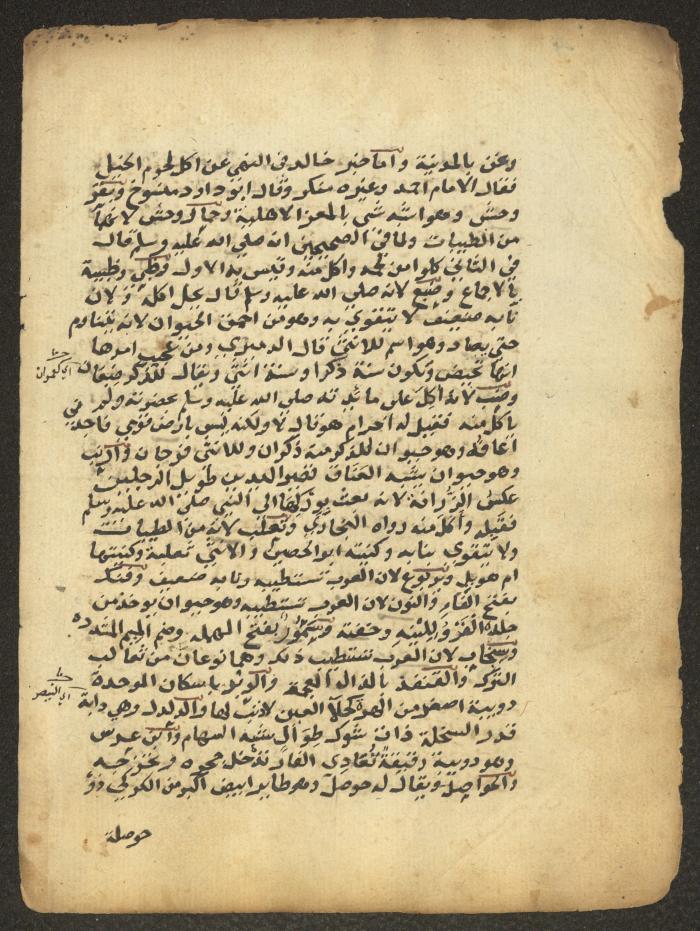 ونحن بالمدينة واما خبر خالد في النهي عن اكل لحوم الخيل
فقال الامام احمد وغيره منكر وقال ابو داود منسوخ وبقر
وحش وهو اشبه شي بالمعز الاهلية وحمار وحش لانهما
من الطيبات ولما في الصحيحين انه صلي الله عليه وسلم قال
في الثاني كلوا من لحمه واكل منه وقيس به الاول وظبي وظبية
بالاجماع وضبع لانه صلي الله عليه وسلم قال يحل اكله ولان
نابه ضعيف لا يتقوي به وهو من احمق الحيوان لانه يتناوم
حتي يصاد وهو اسم للانثي قال الدميري ومن عجيب امرها
انها تحيض وتكون سنة ذكرا وسنة انثي ويقال للذكر ضبعان
وضب لانه اكل علي مائدته صلي الله عليه وسلم بحضرته ولم
ياكل منه فقيل له احرام هو قال لا ولكنه ليس بارض قومي فاجدني
اعافه وهو حيوان للذكر منه ذكران وللانثي فرجان وارنب
وهو حيوان يشبه العناق قصير اليدين طويل الرجلين
عكس الزرافة لانه بعث بوركها الي النبي صلي الله عليه وسلم
فقبله واكل منه رواه البخاري وثعلب لانه من الطيبات
ولا يتقوي بنابه وكنيته ابو الحصين والانثي ثعلبة وكنيتها
ام هويل ويربوع لان العرب تستطيبه ونابه ضعيف وفنك
بفتح الفاء والنون لان العرب تستطيبه وهو حيوان يوخذ من
جلده الفرو للينه وخفته وسمور بفتح المهملة وضم الميم المشددة
وسنجاب لان العرب تستطيب ذلك وهما نوعان من ثعالب
الترك والقنفذ بالذال المعجمة والوبر باسكان الموحدة
دويبة اصغر من الهرة كحلا العين لا ذنب لها والدلدل وهي دابة
قدر السخلة ذات شوك طوال يشبه السهام وابن عرس
وهو دويبة رقيقة تعادي الفار تدخل جحره وتخرجه
والحواصل ويقال له حوصل وهو طاير ابيض اكبر من الكركي ذو
حوصلة